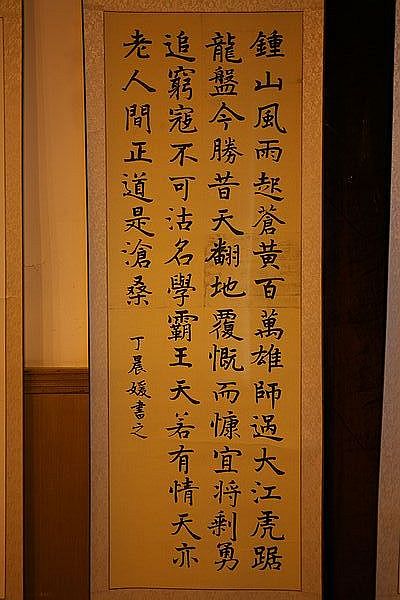 鍾山風雨起蒼黃百萬雄師過大江虎踞
龍盤今勝昔天翻地覆慨而慷宜將剩勇
追窮寇不可沽名學霸王天若有情天亦
老人間正道是滄桑
丁晨媛書之